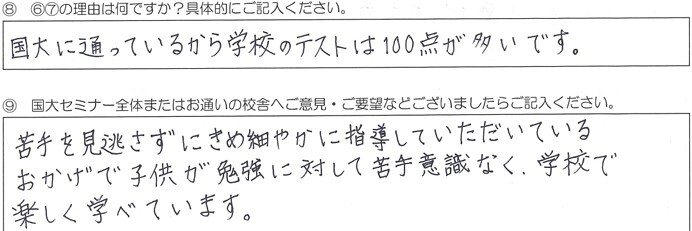 ⑧　⑥⑦の理由は何ですか？具体的にご記入ください。
国大に通っているから学校のテストは100点が多いです。
⑨　国大セミナー全体またはお通いの校舎へご意見・ご要望などございましたらご記入ください。
苦手を見逃さずにきめ細やかに指導していただいている
おかげで子供が勉強に対して苦手意識なく、学校で
楽しく学べています。